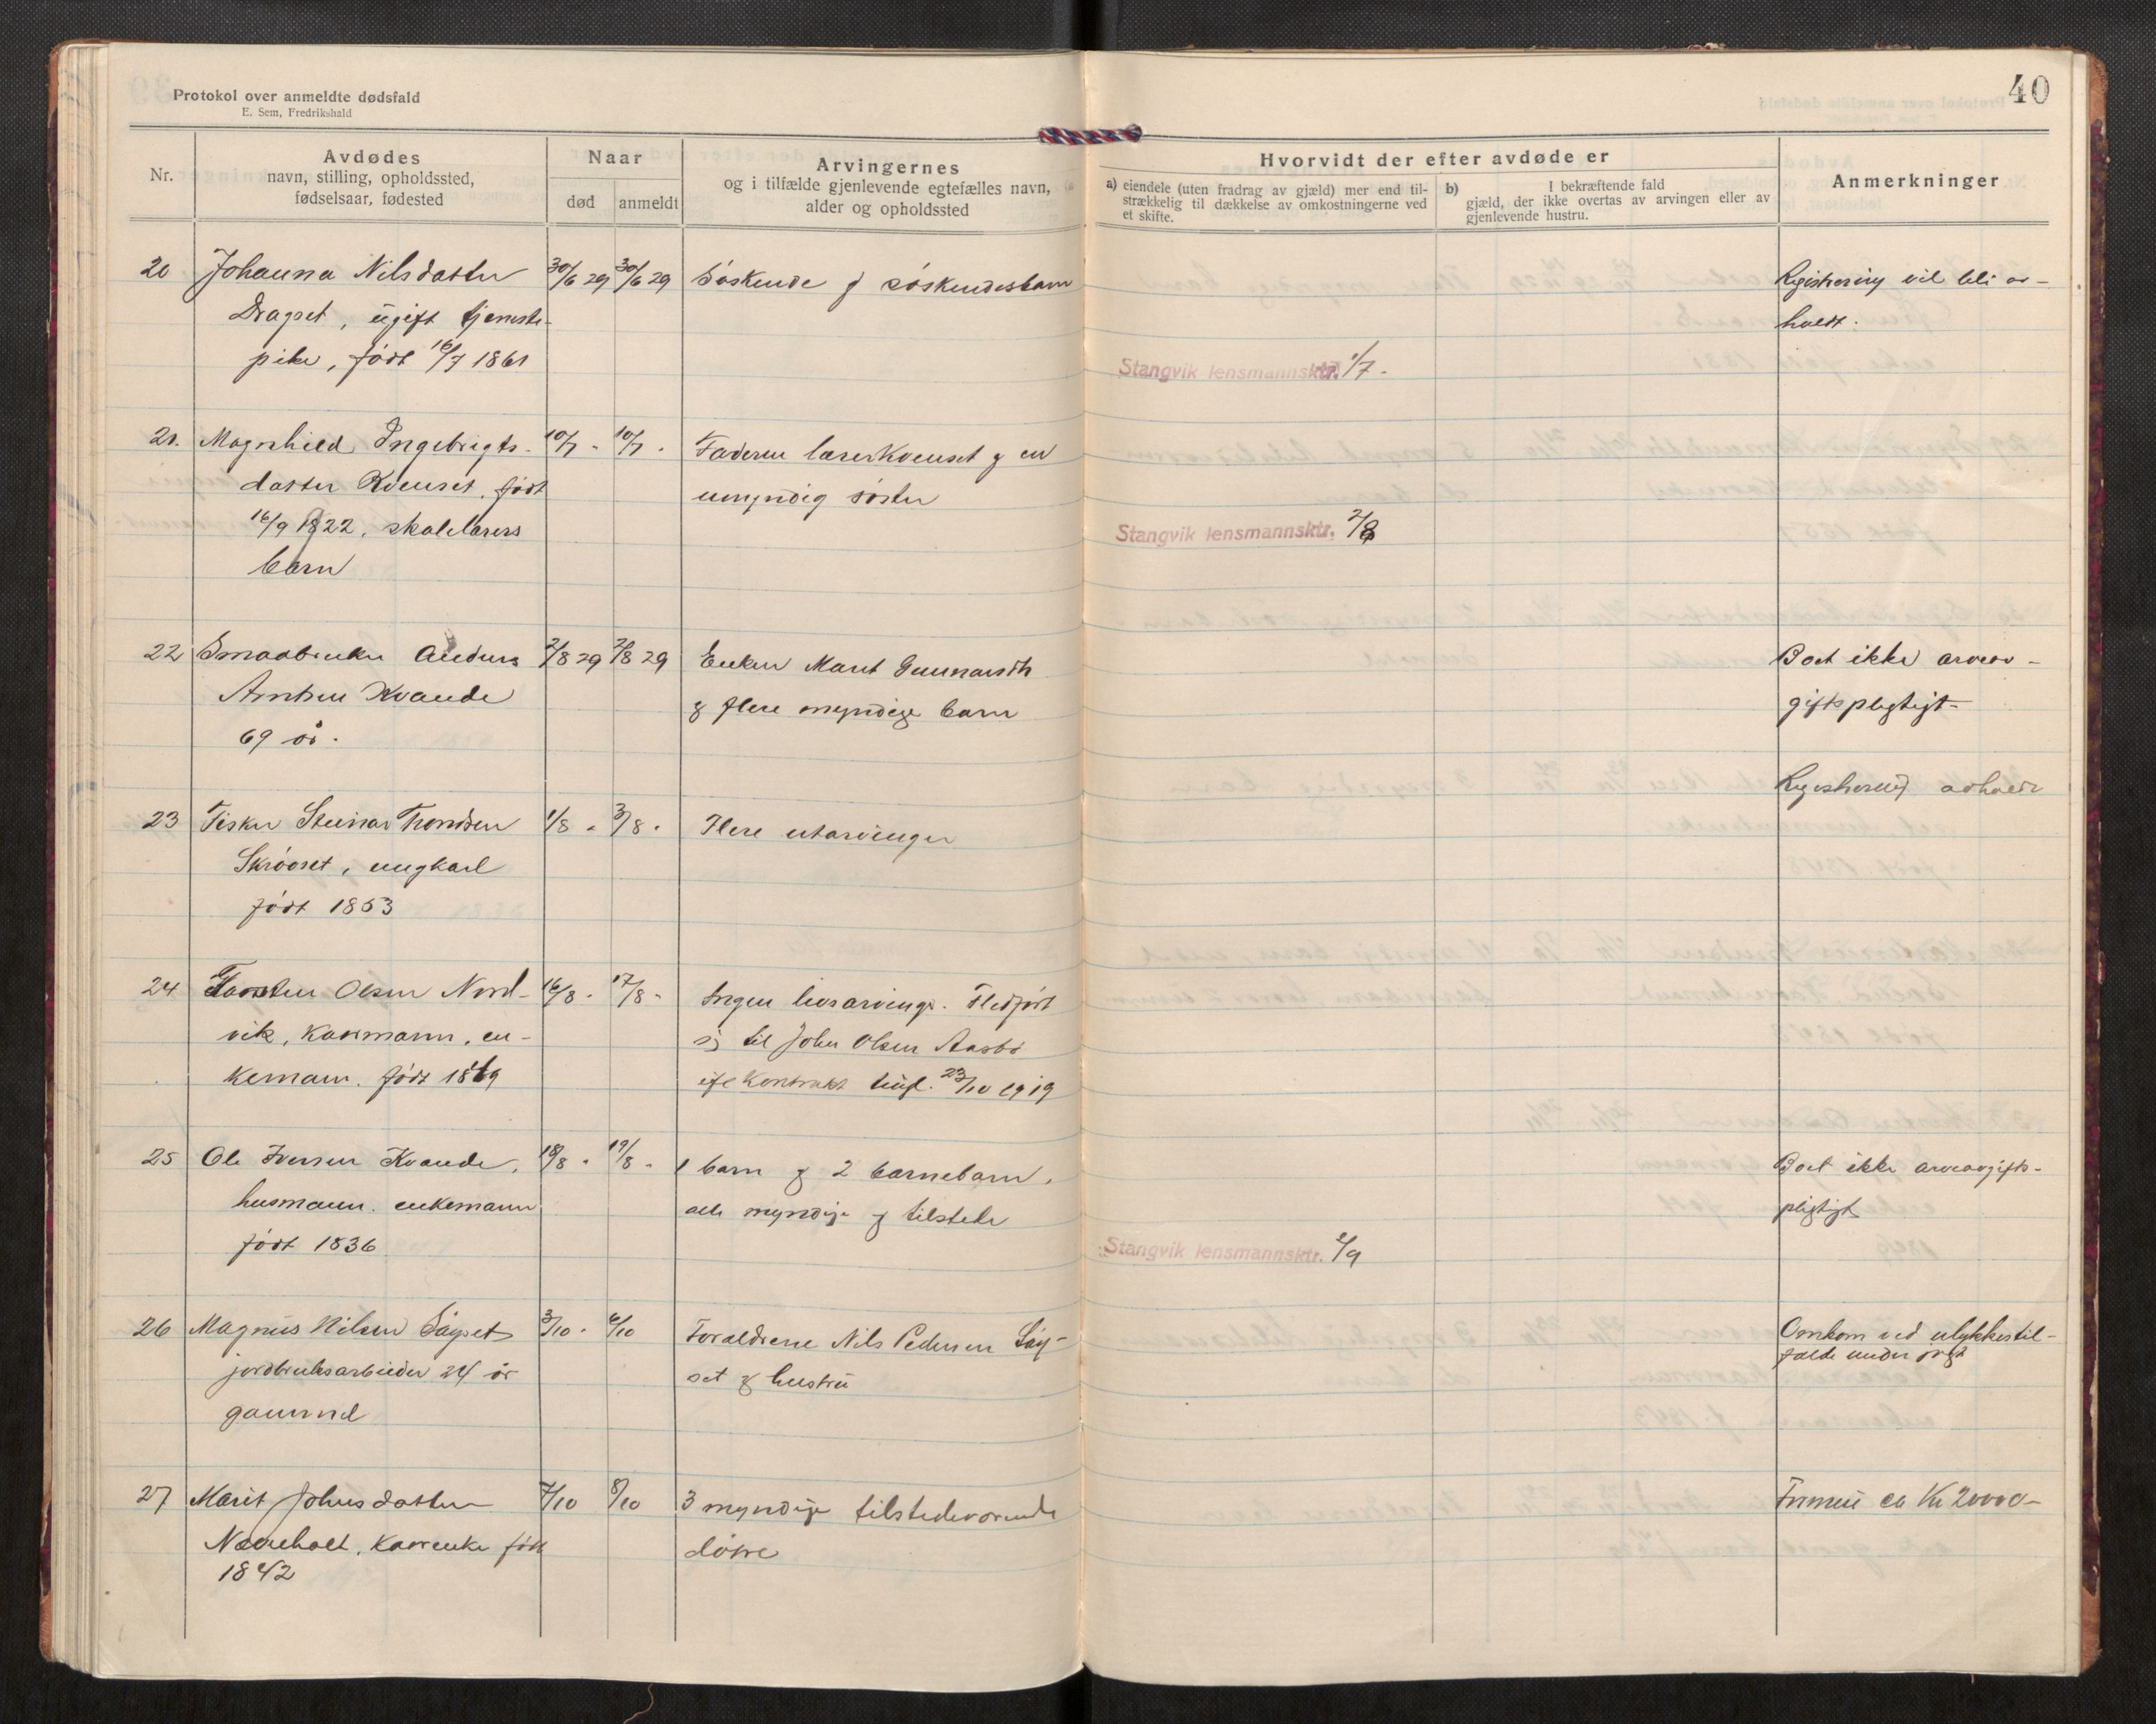 40
Protokol over anmeldte dødsfald
E. Sem, Fredrikshald
Nr.
Avdødes
navn, stilling, opholdssted,
fødselsaar, fødested
Naar
død
anmeldt
Arvingernes
og i tilfælde gjenlevende egtefælles navn,
alder og opholdssted
Hvorvidt der efter avdøde er
a) eiendele (uten fradrag av gjæld) mer end til-
strækkelig til dækkelse av omkostningerne ved
et skifte.
b) I bekræftende fald
gjæld, der ikke overtas av arvingen eller av
gjenlevende hustru.
Anmerkninger
20 Johanna Nilsdatter 30/6 29 30/6 29 Søskende & søskendesbarn Registrering vil bli av-
Dragset, ugift tjeneste- holdt.
pike, født 16/7 1861
Stangvik lensmannsktr. 1/7 -
21. Magnhild Ingebrigts- 10/7 - 10/7 - Faderen lærer Kvenset & en
datter Kvenset, født umyndig søster
16/9 1922, skolelærers
barn
Stangvik lensmannsktr. 2/8
22 Smaabruker Anders 2/8 29 2/8 29 Enken Marit Gunnarsdtr Boet ikke arveav-
Arntsen Kvande & flere myndige barn giftspligtigt-
69 år.
23 Fisker Steinar Trondsen 1/8 - 3/8 - Flere utarvinger Registrering avholdt
Skrøvset, ungkarl
født 1853
24 Olsen Nord- 16/8 - 17/8 - Ingen livsarvinger. Fledført
vik, kaarmann, en- sig til John Olsen Aasbø
kemann. født ifl kontrakt tingl. 23/10 1919
25 Ole Iversen Kvande, 18/8 - 19/8 - 1 barn & 2 barnebarn, Boet ikke arveavgifts-
husmann. enkemann alle myndige & tilstede pligtigt
født 1836
Stangvik lensmannsktr. 2/9
26 Magnus Nilsen Sæyset 3/10 - 6/10 Forældrene Nils Pedersen Sæy- Omkom ved ulykkestil-
jordbruksarbeider 24 år set & hustru fælde under
gammel
27 Marit Johnsdatter 7/10 8/10 3 myndige tilstedeværende Formue ca Kr 20000-
kaarenke født døtre
1842